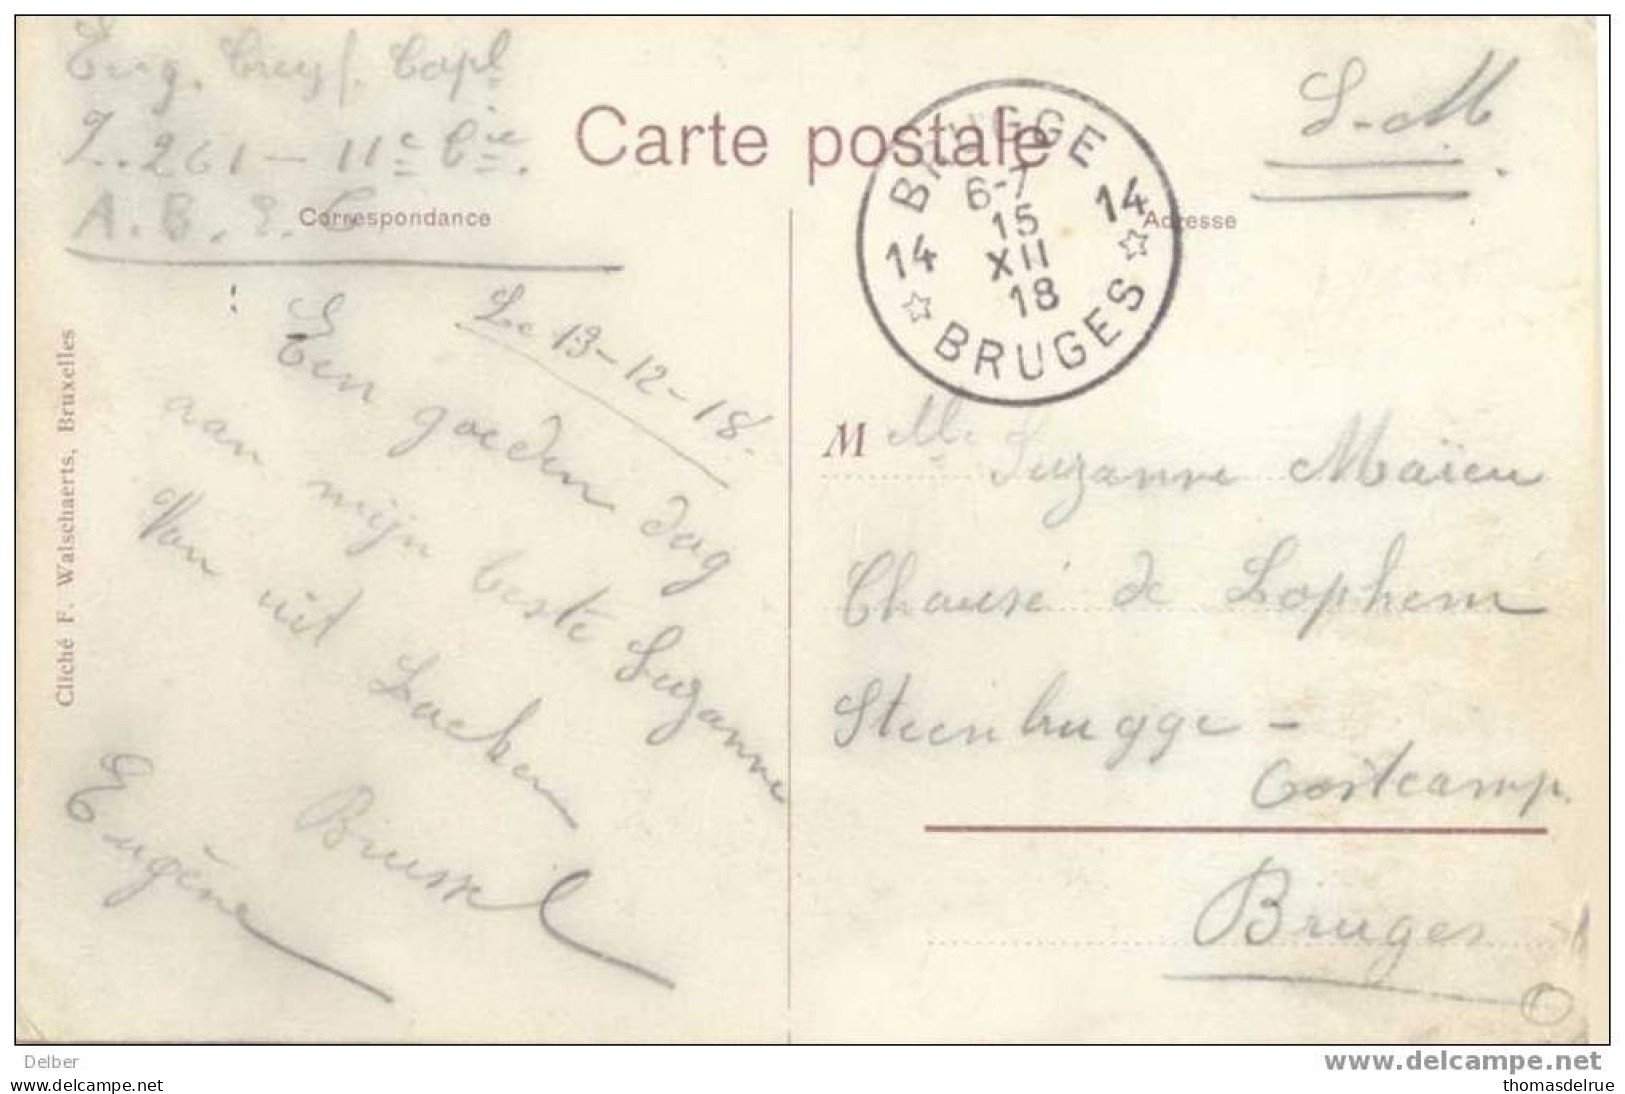 Eug. Cuyf. Capl
Z. 261 - 11e Cie.
A. B. E. C
Carte postale
Correspondance
Adresse
S.M.
BRUGGE
14 6-7 14
15
XII
18
BRUGES
Le 13-12-18.
Een goeden dag
aan mijn beste Suzanne
Van uit Laeken
Brussel
Eugène
Cliché F. Walschaerts, Bruxelles
M Mlle Suzanne Maïeu
Chausé de Lophem
Steenbrugge -
Oostcamp.
Bruges
Delber
www.delcampe.net
thomasdelrue